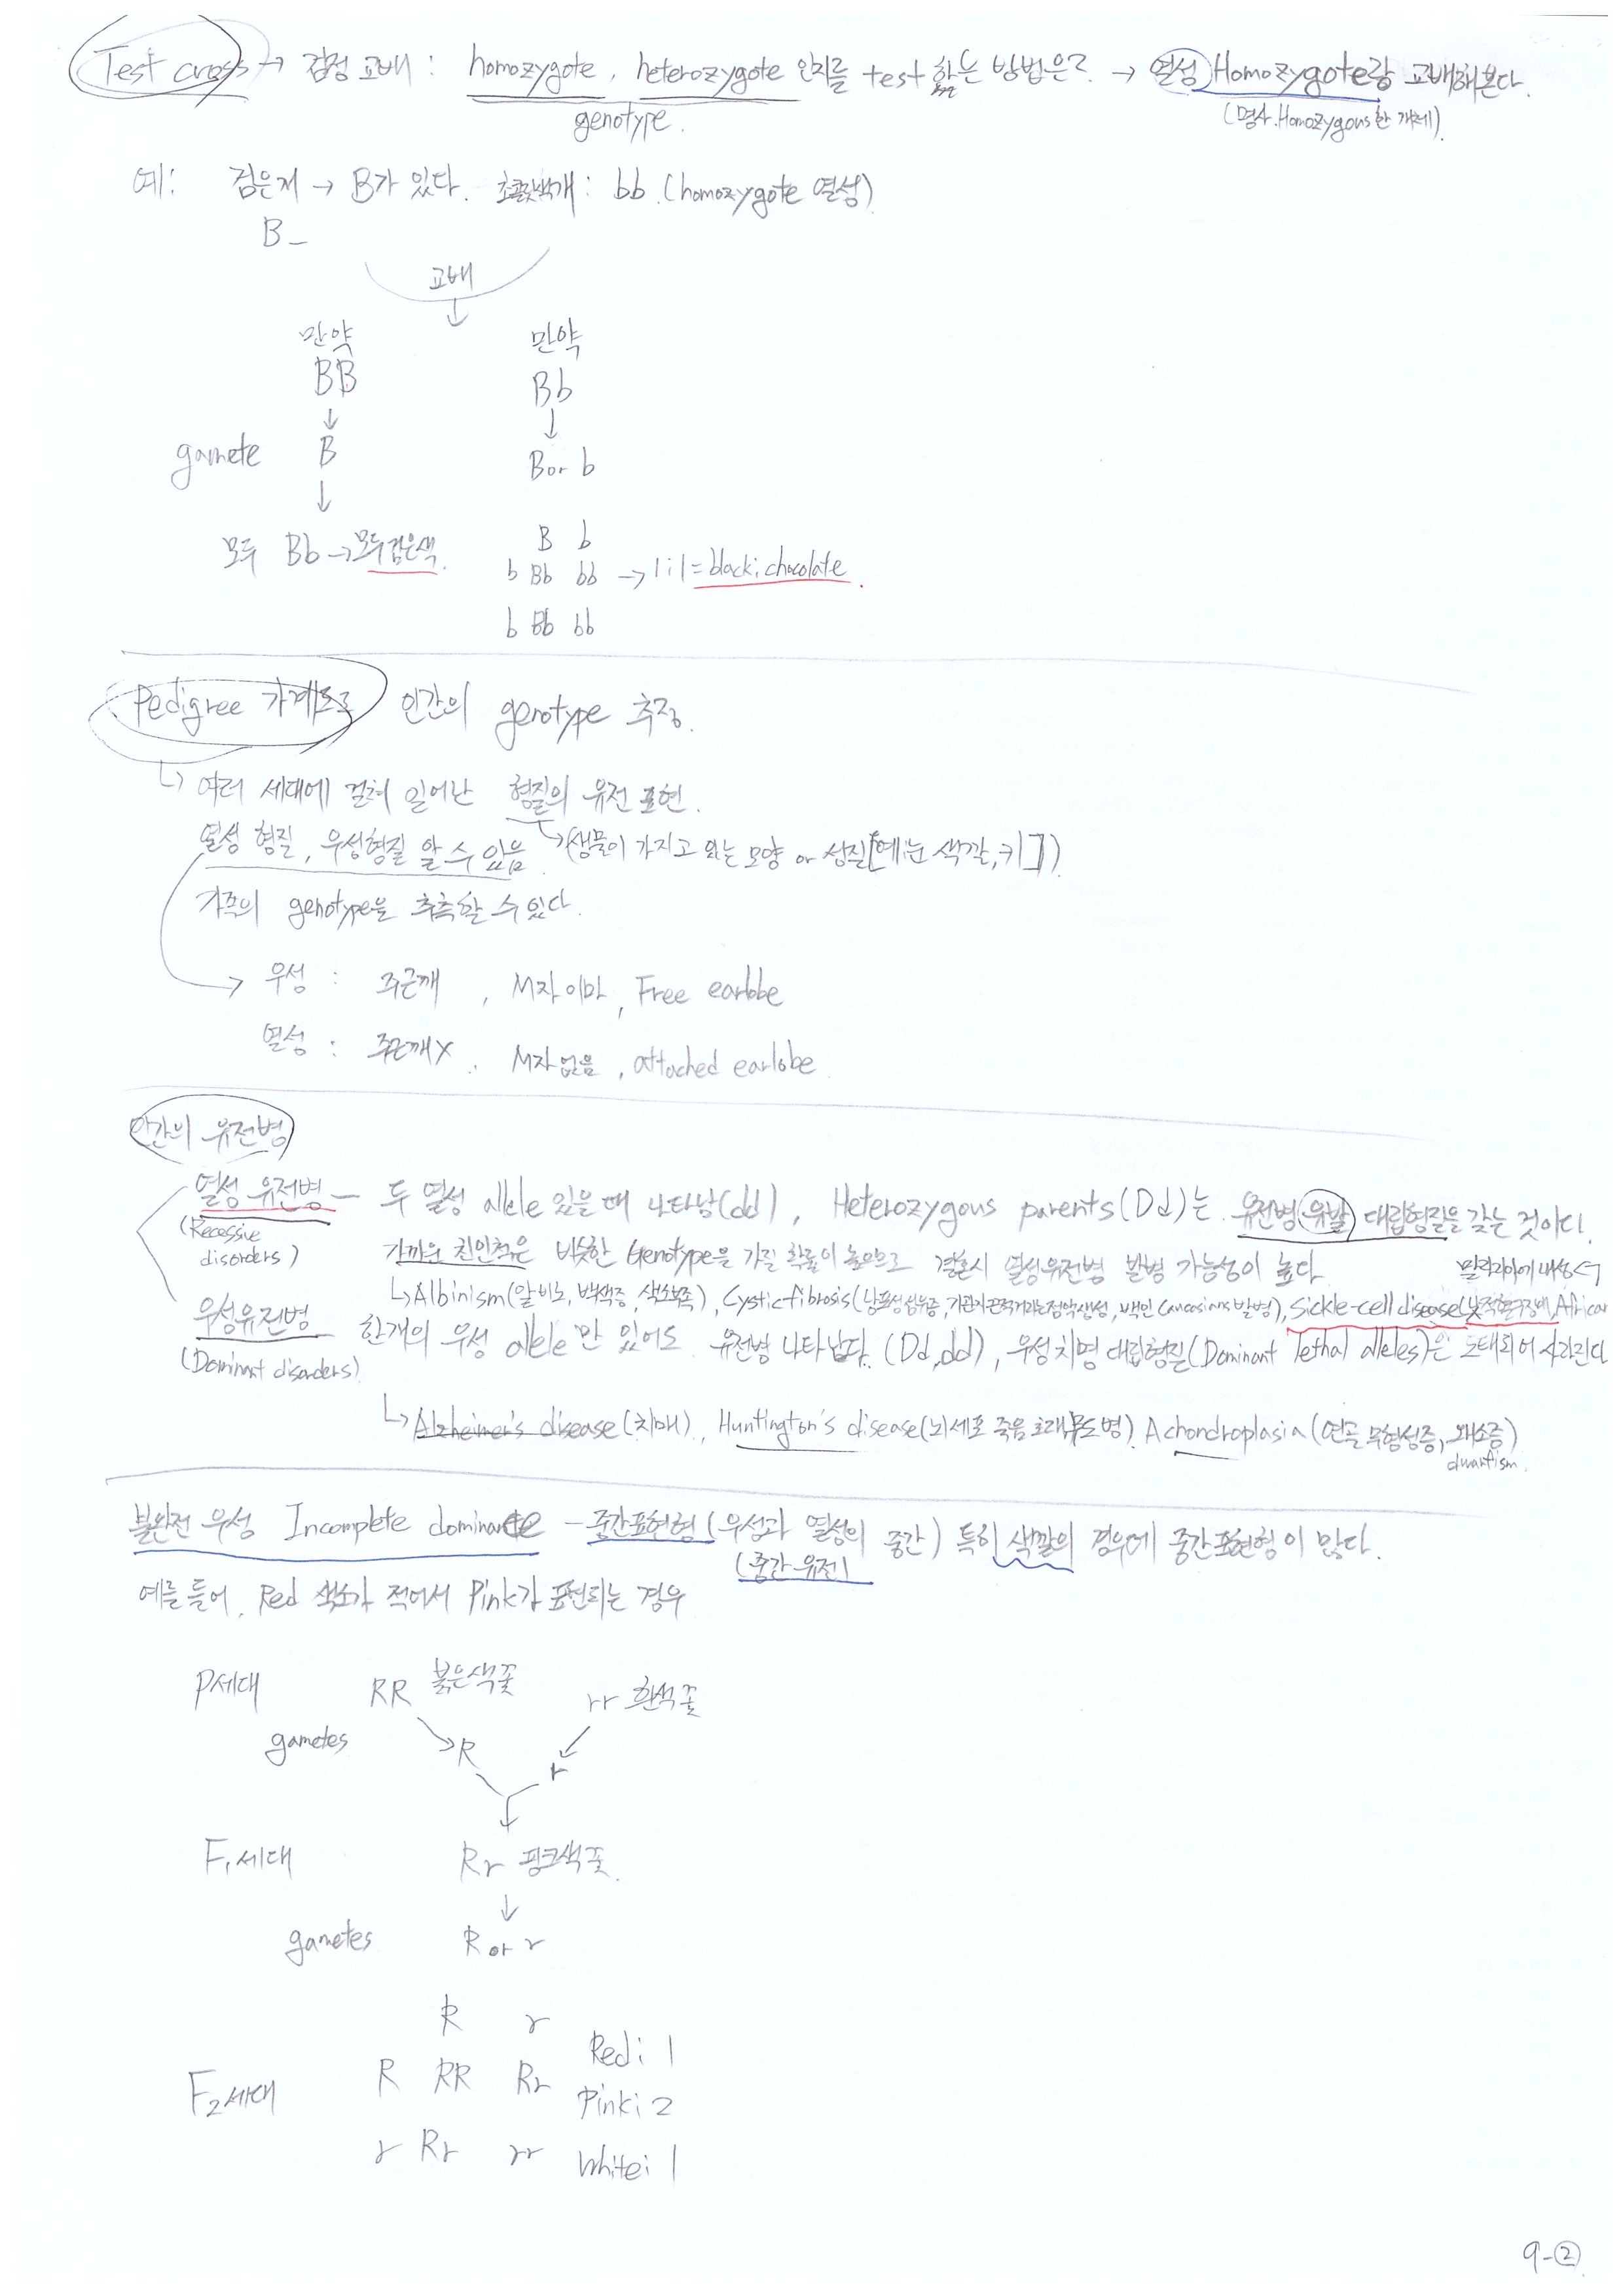 Test cross → 검정 교배 : homozygote, heterozygote 인지를 test 하는 방법은? → 열성 Homozygote랑 교배해본다.
genotype.
(명사. Homozygous한 개체).
예: 검은개 → B가 있다. 초콜릿색개: bb. (homozygote 열성)
B_
교배
만약 만약
BB Bb
gamete B B or b
모두 Bb → 모두 검은색.
B b
b Bb bb → 1:1 = black: chocolate.
b Bb bb
Pedigree 가계도로 인간의 genotype 추정.
↳ 여러 세대에 걸쳐 일어난 형질의 유전 표현.
열성 형질, 우성형질 알 수 있음. → (생물이 가지고 있는 모양 or 성질[예:눈 색깔,키])
가족의 genotype을 추측할 수 있다.
→ 우성 : 주근깨, M자 이마, Free earlobe
열성 : 주근깨X, M자 없음, attached earlobe
인간의 유전병
열성 유전병 – 두 열성 allele 있을 때 나타남(dd), Heterozygous parents(Dd)는 유전병(유발) 대립형질을 갖는 것이다.
(Recessive disorders)
가까운 친인척은 비슷한 Genotype을 가질 확률이 높으므로 결혼시 열성유전병 발병 가능성이 높다
말라리아에 내성
↳ Albinism(알비노, 백색증, 색소부족), Cystic fibrosis(낭포성섬유증, 기관지 끈적거리는 점액생성, 백인 Caucasians 발병), Sickle-cell disease(낫적혈구장애, African
우성유전병 – 한개의 우성 allele만 있어도 유전병 나타난다. (Dd, dd), 우성치명 대립형질(Dominant lethal alleles)은 도태되어 사라진다
(Dominant disorders)
↳ Alzheimer's disease(치매), Huntington's disease(뇌세포 죽음 무도병). Achondroplasia(연골 무형성증, 왜소증)
dwarfism.
불완전 우성 Incomplete dominance – 중간표현형(우성과 열성의 중간) 특히 색깔의 경우에 중간표현형이 많다.
(중간 유전)
예를 들어, Red 색소가 적어서 Pink가 표현되는 경우
P세대 RR 붉은색꽃 rr 흰색꽃
gametes R r
F₁세대 Rr 핑크색꽃.
gametes R or r
R r
Red: 1
F₂세대 R RR Rr
Pink: 2
r Rr rr White: 1
9-②